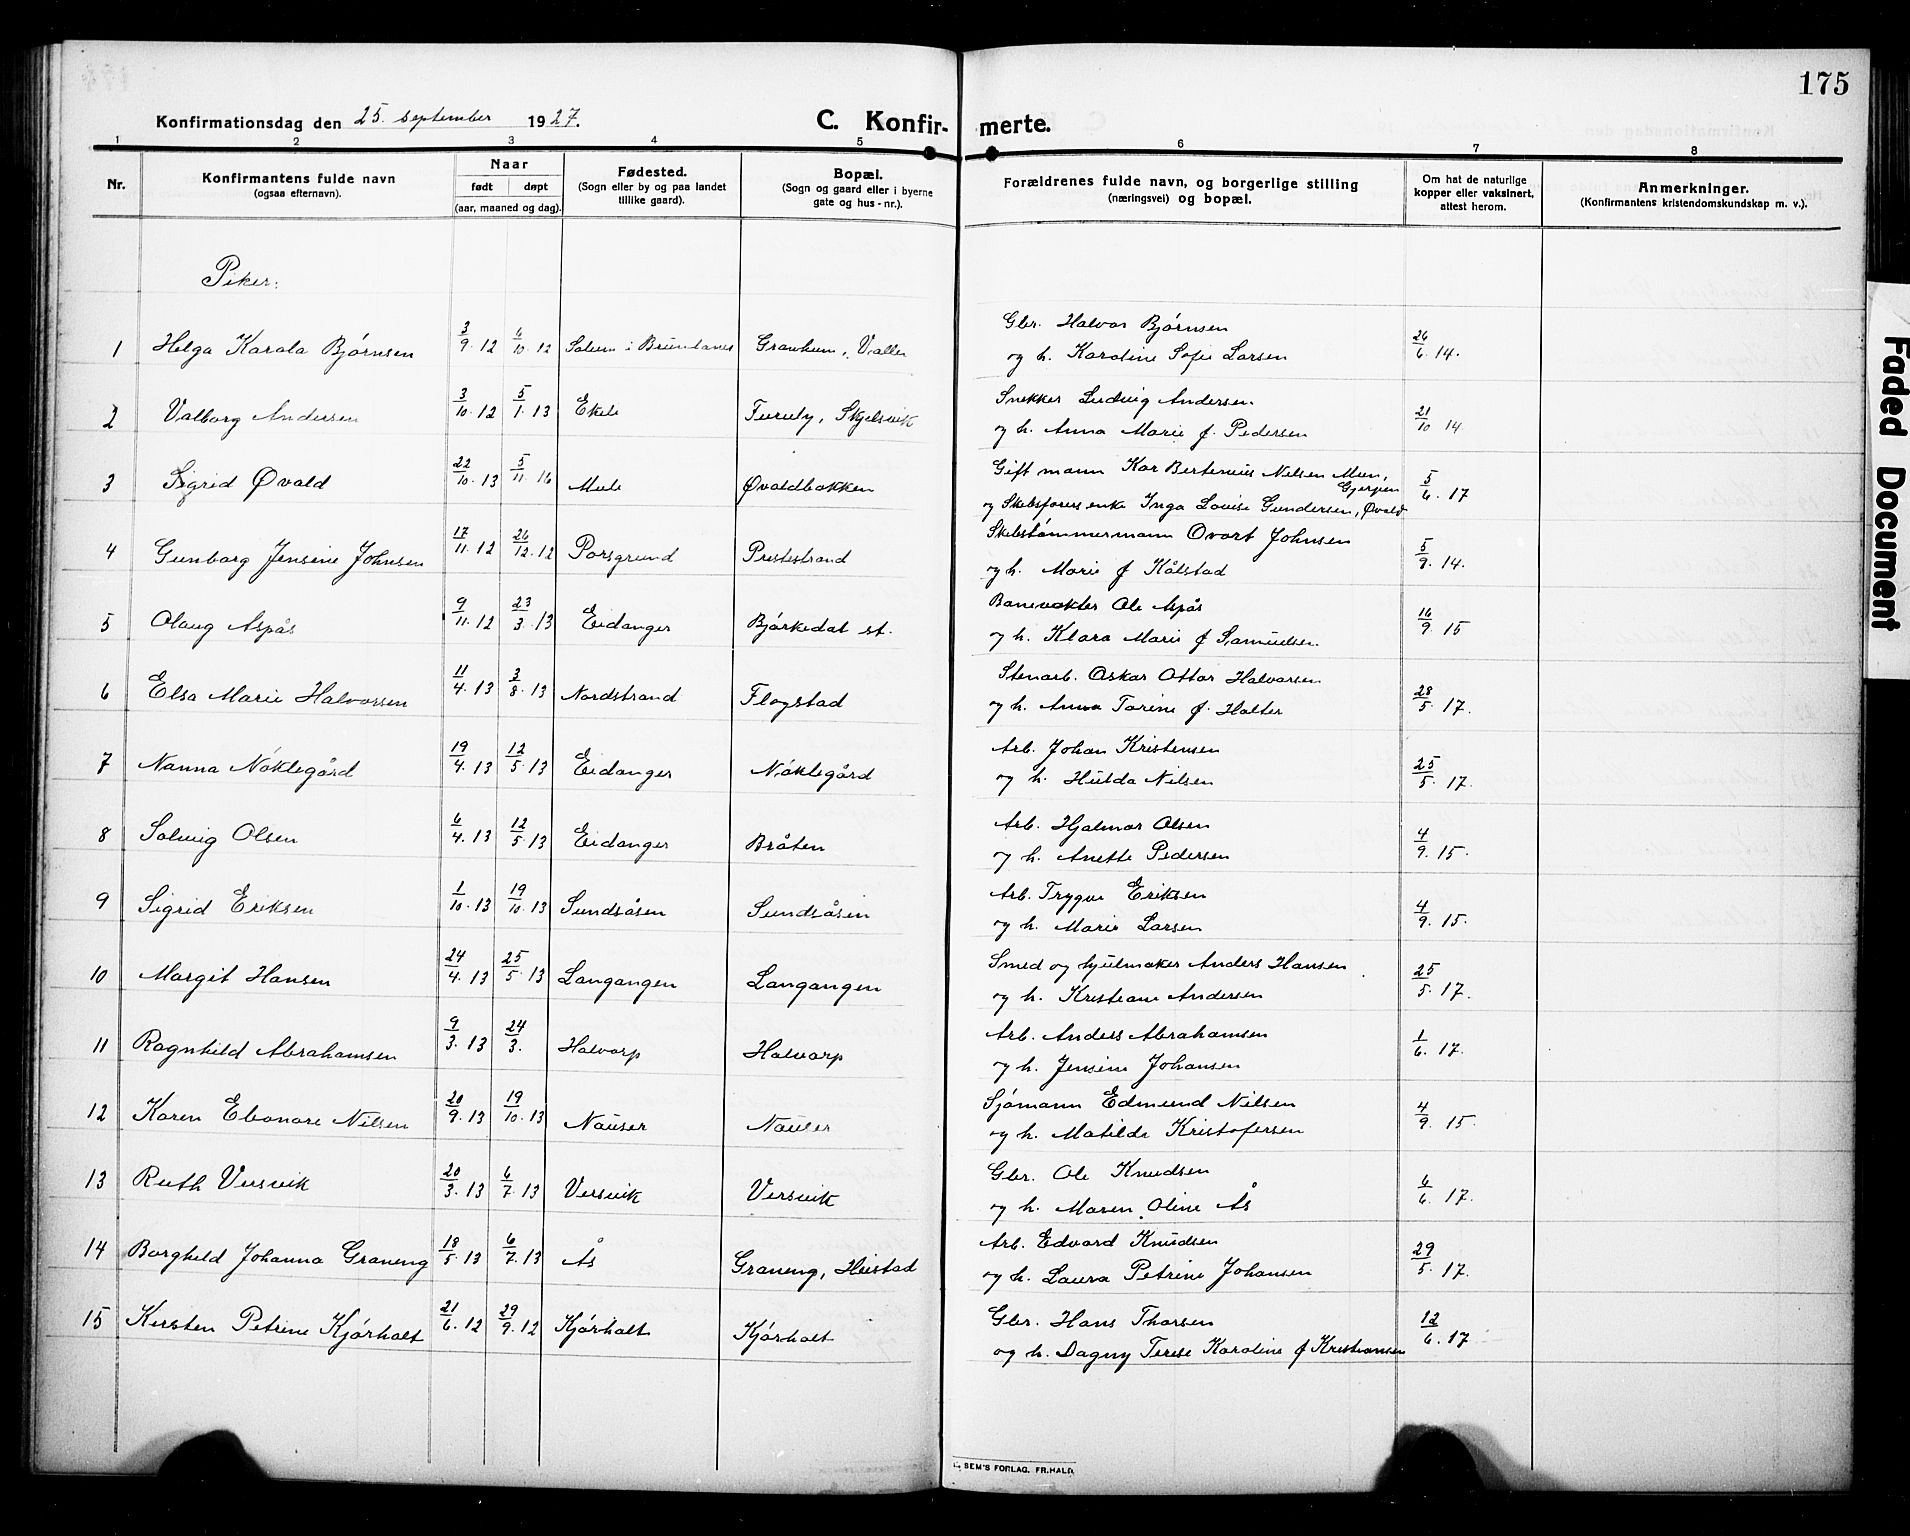 175
Konfirmationsdag den 25. september 1927.
C. Konfir-merte.
1 2 3 4 5 6 7 8
Nr.
Konfirmantens fulde navn
(ogsaa efternavn).
Naar
født døpt
(aar, maaned og dag).
Fødested.
(Sogn eller by og paa landet
tillike gaard).
Bopæl.
(Sogn og gaard eller i byerne
gate og hus-nr.).
Forældrenes fulde navn, og borgerlige stilling
(næringsvei) og bopæl.
Om hat de naturlige
kopper eller vaksinert,
attest herom.
Anmerkninger.
(Konfirmantens kristendomskundskap m. v.).
Piker:
Gbr. Halvor Bjørnsen
1 Helga Karola Bjørnsen 3/9.12 6/10.12 i Brunlanes 26/6.14.
og h. Karoline Sofie Larsen
Snekker Ludvig Andersen.
2 Valborg Andersen 3/10.12 5/1.13 Furuly, Skjelsvik 21/10 14
og h. Anna Marie f. Pedersen
Gift mann Kar Bertenius Nielsen Mun,
Gjerpen
3 Sigrid Øvald 22/10.13 5/11.16 Mule Øvaldbakken 5/6.17
og Skibsførers enke Inga Lovise Gundersen, Øvald
Skibstømmermann Johnsen
4 Gunborg Jensine Johnsen 17/11.12 26/12.12 Porsgrund Prestestrand 5/9.14.
og h. Marie f Kålstad
Banevokter Ole Aspås
5 Olaug Aspås 9/11.12 23/3.13 Eidanger Bjørkedal st. 16/9 15
og h. Klara Marie f Samuelsen.
Stenarb. Oskar Ottar Halvorsen
6 Elsa Marie Halvorsen 11/4.13 3/8.13 Nordstrand Flogstad 28/5.17.
og h. Anna Torine f. Holter
Arb. Johan Kristensen
7 Nanna Nøklegård 19/4.13 12/5.13 Eidanger Nøklegård 25/5.17.
og h. Hulda Nilsen
Arb. Hjalmar Olsen
8 Solveig Olsen 6/4.13 12/5.13 Eidanger Bråten 4/9.15.
og h. Anette Pedersen
Arb. Trygve Eriksen
9 Sigrid Eriksen 1/10.13 19/10.13 Sundsåsen Sundsåsen 4/9.15.
og h. Marie Larsen
Smed og hjulmaker Anders Hansen
10 Margit Hansen 24/4.13 25/5.13 Langangen Langangen 25/5.17.
og h. Kristiane Andersen
Arb. Anders Abrahamsen
11 Ragnhild Abrahamsen 9/3.13 24/3. Halvarp Halvarp 1/6.17.
og h. Jensine Johansen
Sjømann Edmund Nilsen
12 Karen Eleonore Nilsen 20/9.13 19/10.13 Nauser Nauser 4/9.15.
og h. Matilde Kristofersen
Gbr. Ole Knudsen
13 Ruth Versvik 20/3.13 6/7.13 Versvik Versvik 6/6.17.
og h. Maren Oline Ås
Arb. Edvard Knudsen
14 Borghild Johanna Graneng 18/5.13 6/7.13 Ås Graneng, Heistad 29/5.17.
og h. Laura Petrine Johansen
Gbr. Hans Thorsen
15 Kirsten Petrine Kjørholt 21/6.12 29/9.12 Kjørholt Kjørholt 12/6.17
og h. Dagny Terese Karoline f Kristiansen
SEM'S FORLAG. FR.HALD.
Faded Document